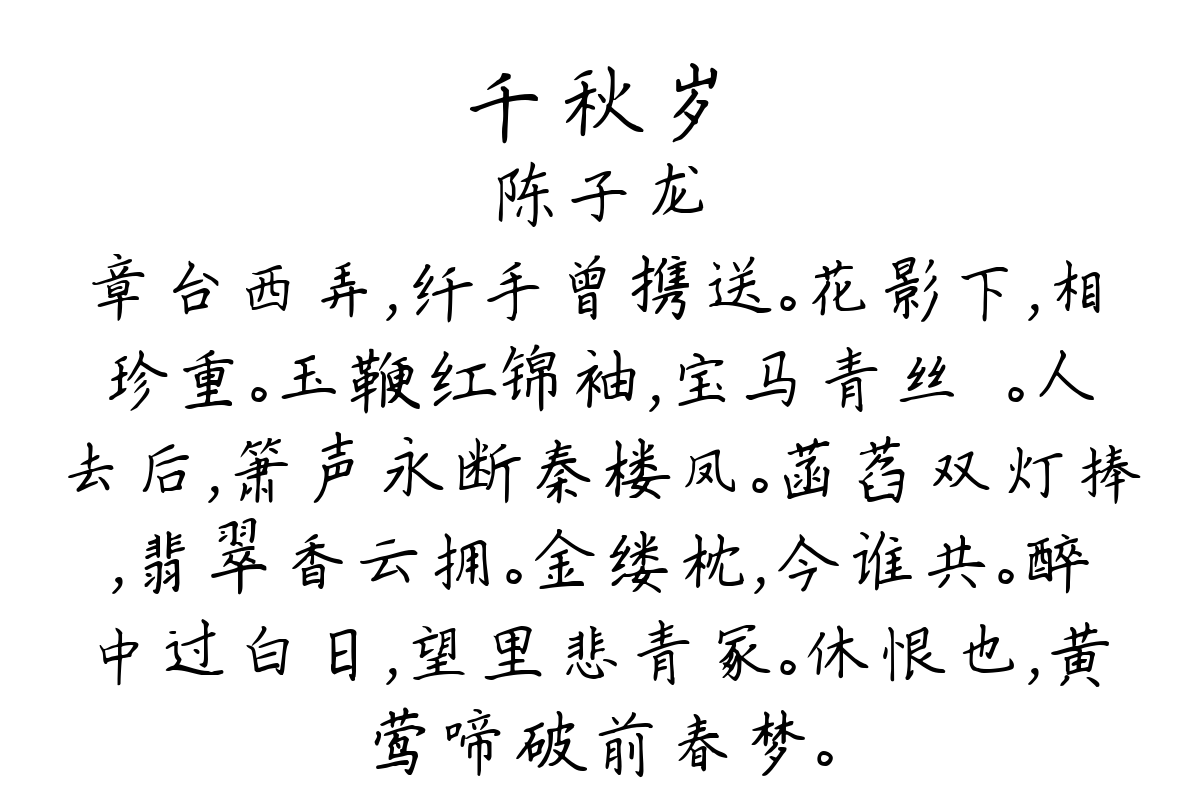 千秋岁
陈子龙
章台西弄,纤手曾携送。花影下,相
珍重。玉鞭红锦袖,宝马青丝 。人
去后,箫声永断秦楼凤。菡萏双灯捧
,翡翠香云拥。金缕枕,今谁共。醉
中过白日,望里悲青冢。休恨也,黄
莺啼破前春梦。